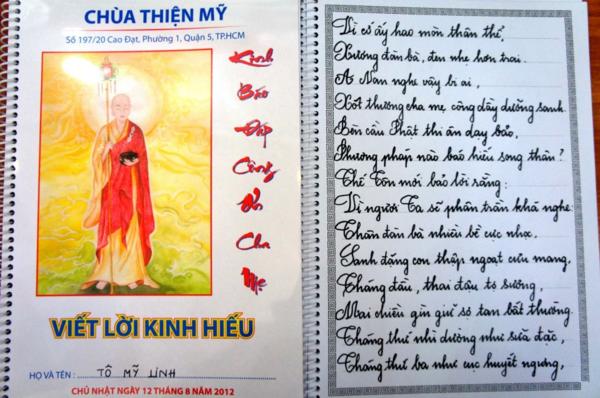 CHÙA THIỆN MỸ
Số 197/20 Cao Đạt, Phường 1, Quận 5, TP.HCM
Kinh
Báo
Đáp
Công
Ơn
Cha
Mẹ
VIẾT LỜI KINH HIẾU
HỌ VÀ TÊN : TÔ MỸ LINH
CHỦ NHẬT NGÀY 12 THÁNG 8 NĂM 2012
Vì cớ ấy hao mòn thân thể,
Xương đàn bà, đen nhẹ hơn trai.
A Nan nghe vậy bi ai,
Xót thương cha mẹ, công dày dưỡng sanh.
Bèn cầu Phật thi ân dạy bảo,
Phương pháp nào báo hiếu song thân?
Thế Tôn mới bảo lời rằng:
Vì ngươi Ta sẽ phân trần khá nghe:
Thân đàn bà nhiều bề cực nhọc,
Sanh đặng con thập ngoạt cưu mang,
Tháng đầu, thai đậu tợ sương,
Mai chiều gìn giữ sợ tan bất thường.
Tháng thứ nhì dường như sữa đặc,
Tháng thứ ba như cục huyết ngưng,